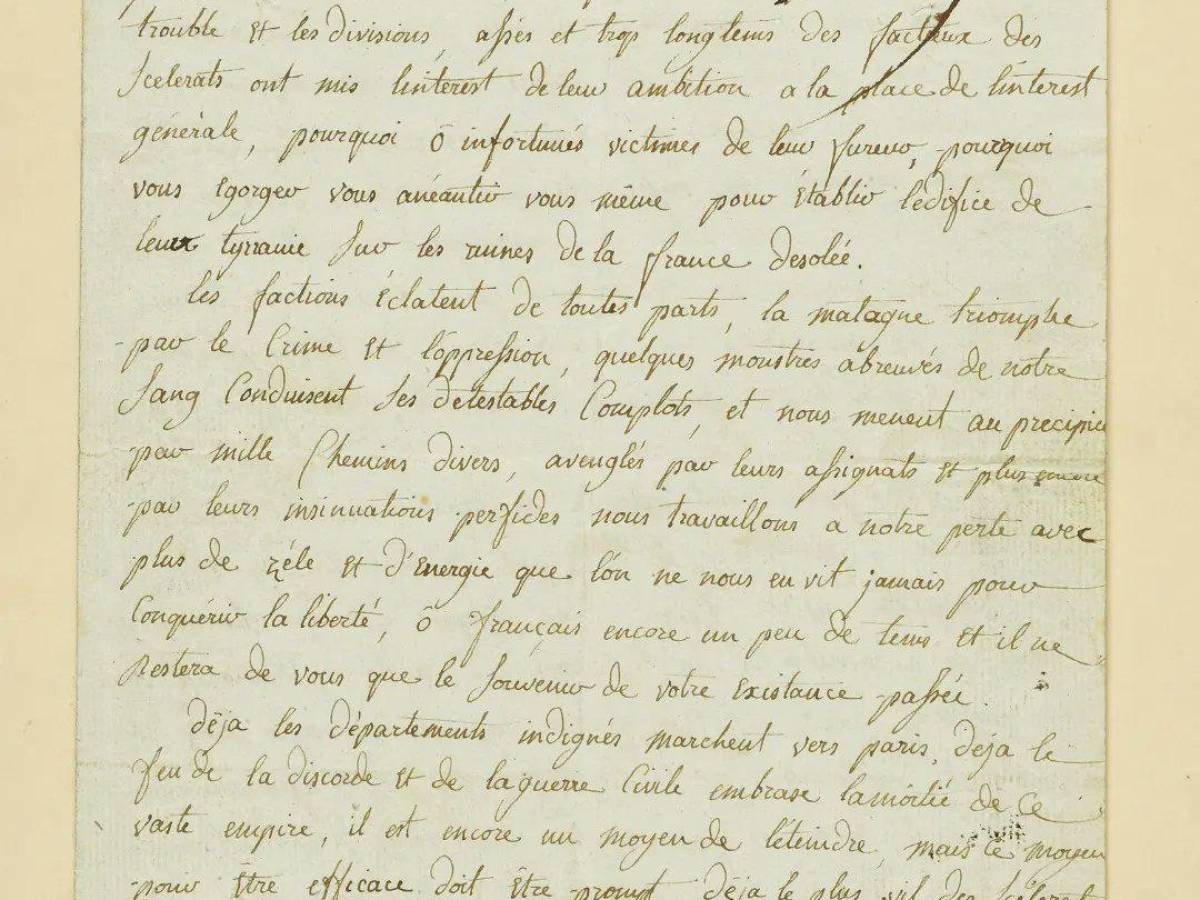 trouble et les divisions, assés et trop longtems des factieux des
scelerats ont mis linterest de leur ambition a la place de linterest
générale, pourquoi ô infortunés victimes de leur fureur, pourquoi
vous Egorger vous anéantir vous même pour établir lédifice de
leur tyrranie sur les ruines de la france desolée.
les factions éclatent de toutes parts, la matagne triomphe
par le Crime et l'oppression, quelques monstres abreuvés de notre
sang Conduisent ses détestables Complots, et nous menent au precipice
par mille Chemins divers, aveuglés par leurs assignats et plus encore
par leurs insinuations perfides nous travaillons a notre perte avec
plus de zéle et d'Energie que lón ne nous en vit jamais pour
Conquérir la liberté, ô français encore un peu de tems et il ne
Restera de vous que le souvenir de votre Existance passée.
déja les départements indignés marchent vers paris, déja le
feu de la discorde et de la guerre Civile embrase la moitié de ce
vaste empire, il est encore un moyen de léteindre, mais ce moyen
pour être efficace doit être prompt déja le plus vil des Scélerats